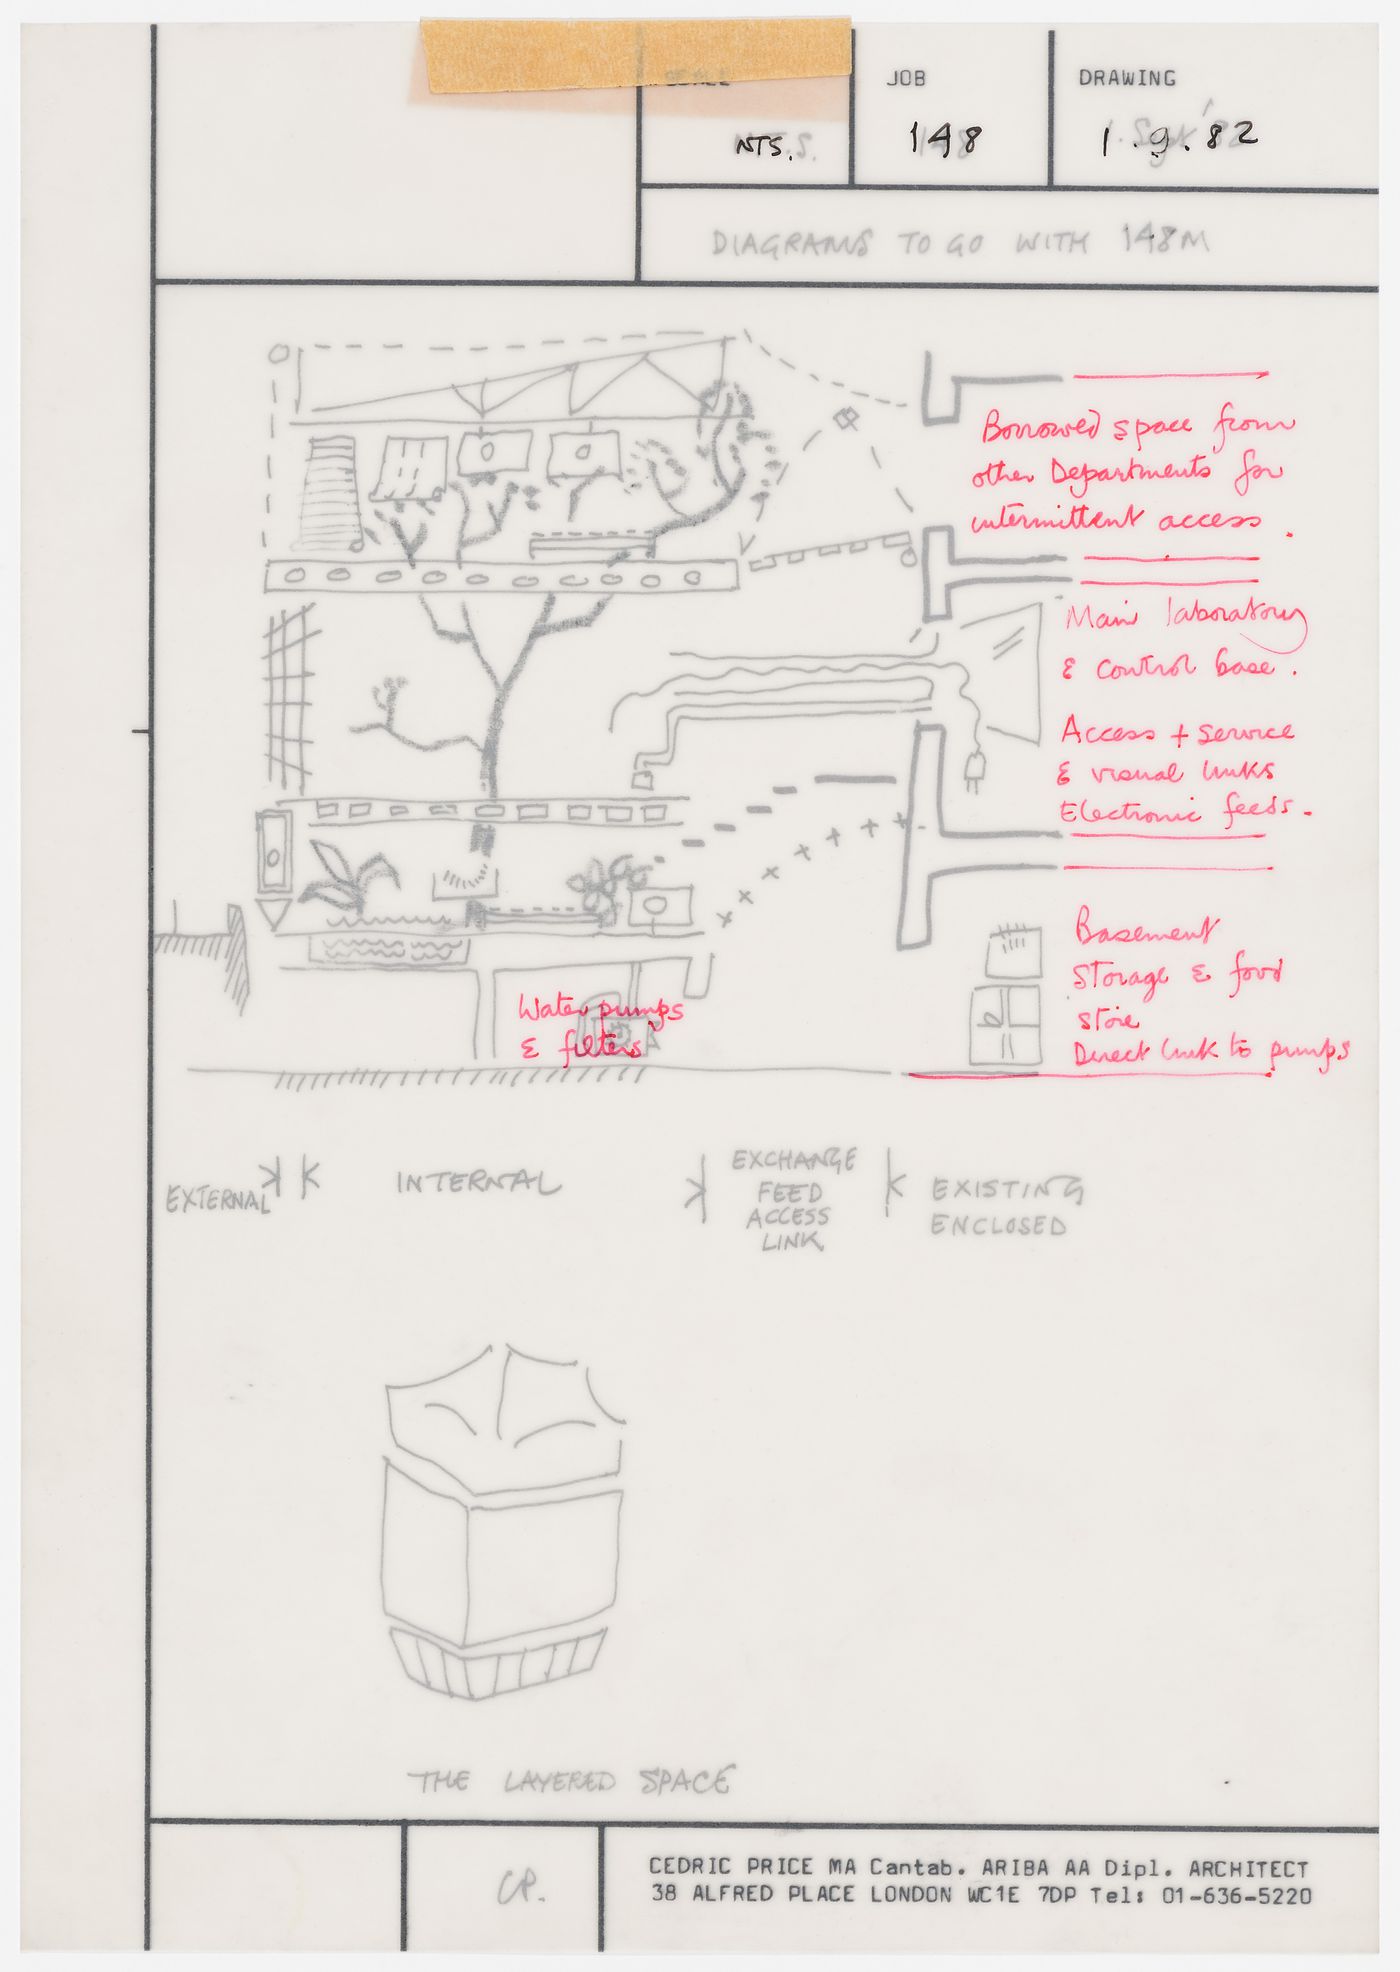 SCALE
JOB
DRAWING
NTS.
148
1.9.82
DIAGRAMS TO GO WITH 148M
Borrowed space from
other Departments for
intermittent access.
Main laboratory
& control base.
Access + service
& visual links
Electronic feeds.
Basement
Storage & food
store
Direct link to pumps
Water pumps
& filters
EXTERNAL
INTERNAL
EXCHANGE
FEED
ACCESS
LINK
EXISTING
ENCLOSED
THE LAYERED SPACE
CP.
CEDRIC PRICE MA Cantab. ARIBA AA Dipl. ARCHITECT
38 ALFRED PLACE LONDON WC1E 7DP Tel: 01-636-5220